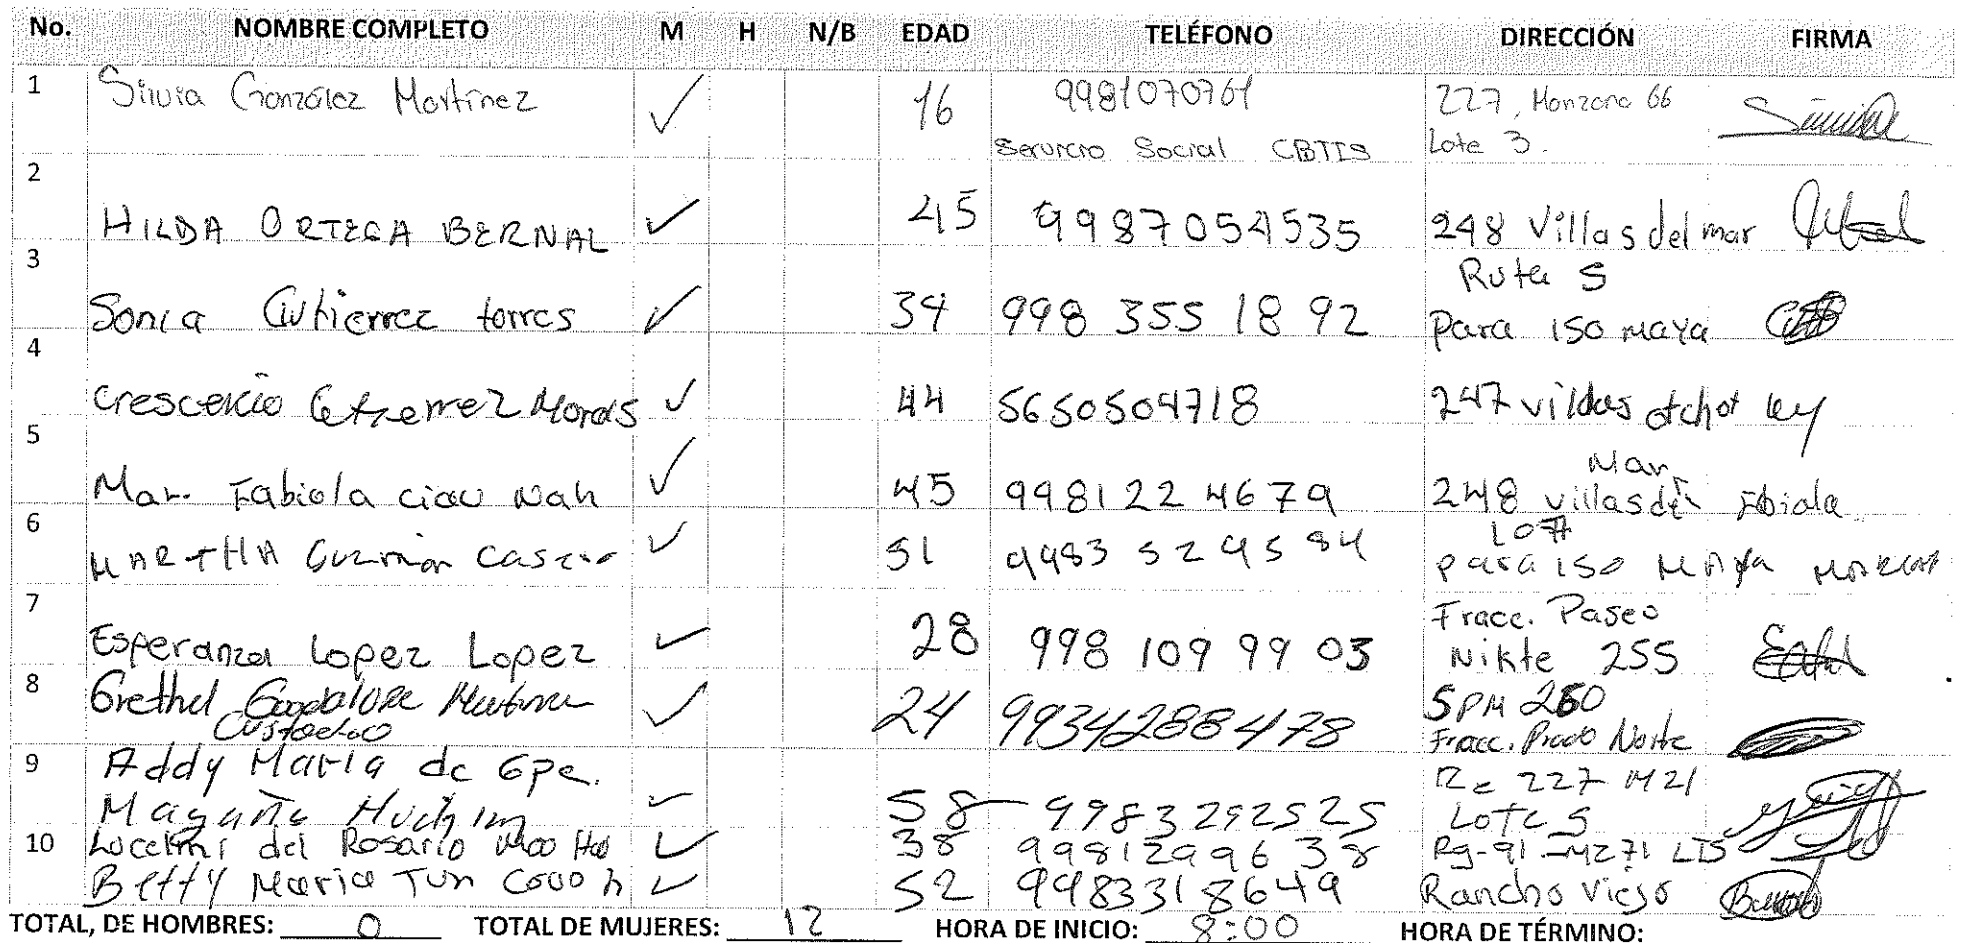 No. NOMBRE COMPLETO M H N/B EDAD TELÉFONO DIRECCIÓN FIRMA
1 Silvia González Martínez ✓ 16 9981070761 227, Manzana 66
Servicio Social CBTIS Lote 3.
2 HILDA ORTEGA BERNAL ✓ 45 9987054535 248 Villas del mar
3 Sonia Gutierrez torres ✓ 34 998 355 18 92 Ruta 5
Para iso maya
4 Crescencio ✓ 44 5650504718 247 villas
5 Mar. Fabiola ciau Nah ✓ 45 998122 4679 248 villas del Mar Fabiola
6 MARTHA Guzmán ✓ 51 9983 52 95 84
para iso MAya
7 Esperanza Lopez Lopez ✓ 28 998 109 99 03 Fracc. Paseo
Nikte 255
8 Grethel Guadalupe ✓ 24 9934288478 SPM 260
Custodio Fracc. Prado Norte
9 Addy María de Gpe. 227 M21
Magaña ✓ 58 9983292525 Lote 5
10 del Rosario ✓ 38 9981299638 Rg-91-MZ71 LT5
Betty Maria Tun ✓ 52 9983318649 Rancho Viejo
TOTAL, DE HOMBRES: 0 TOTAL DE MUJERES: 12 HORA DE INICIO: 8:00 HORA DE TÉRMINO: